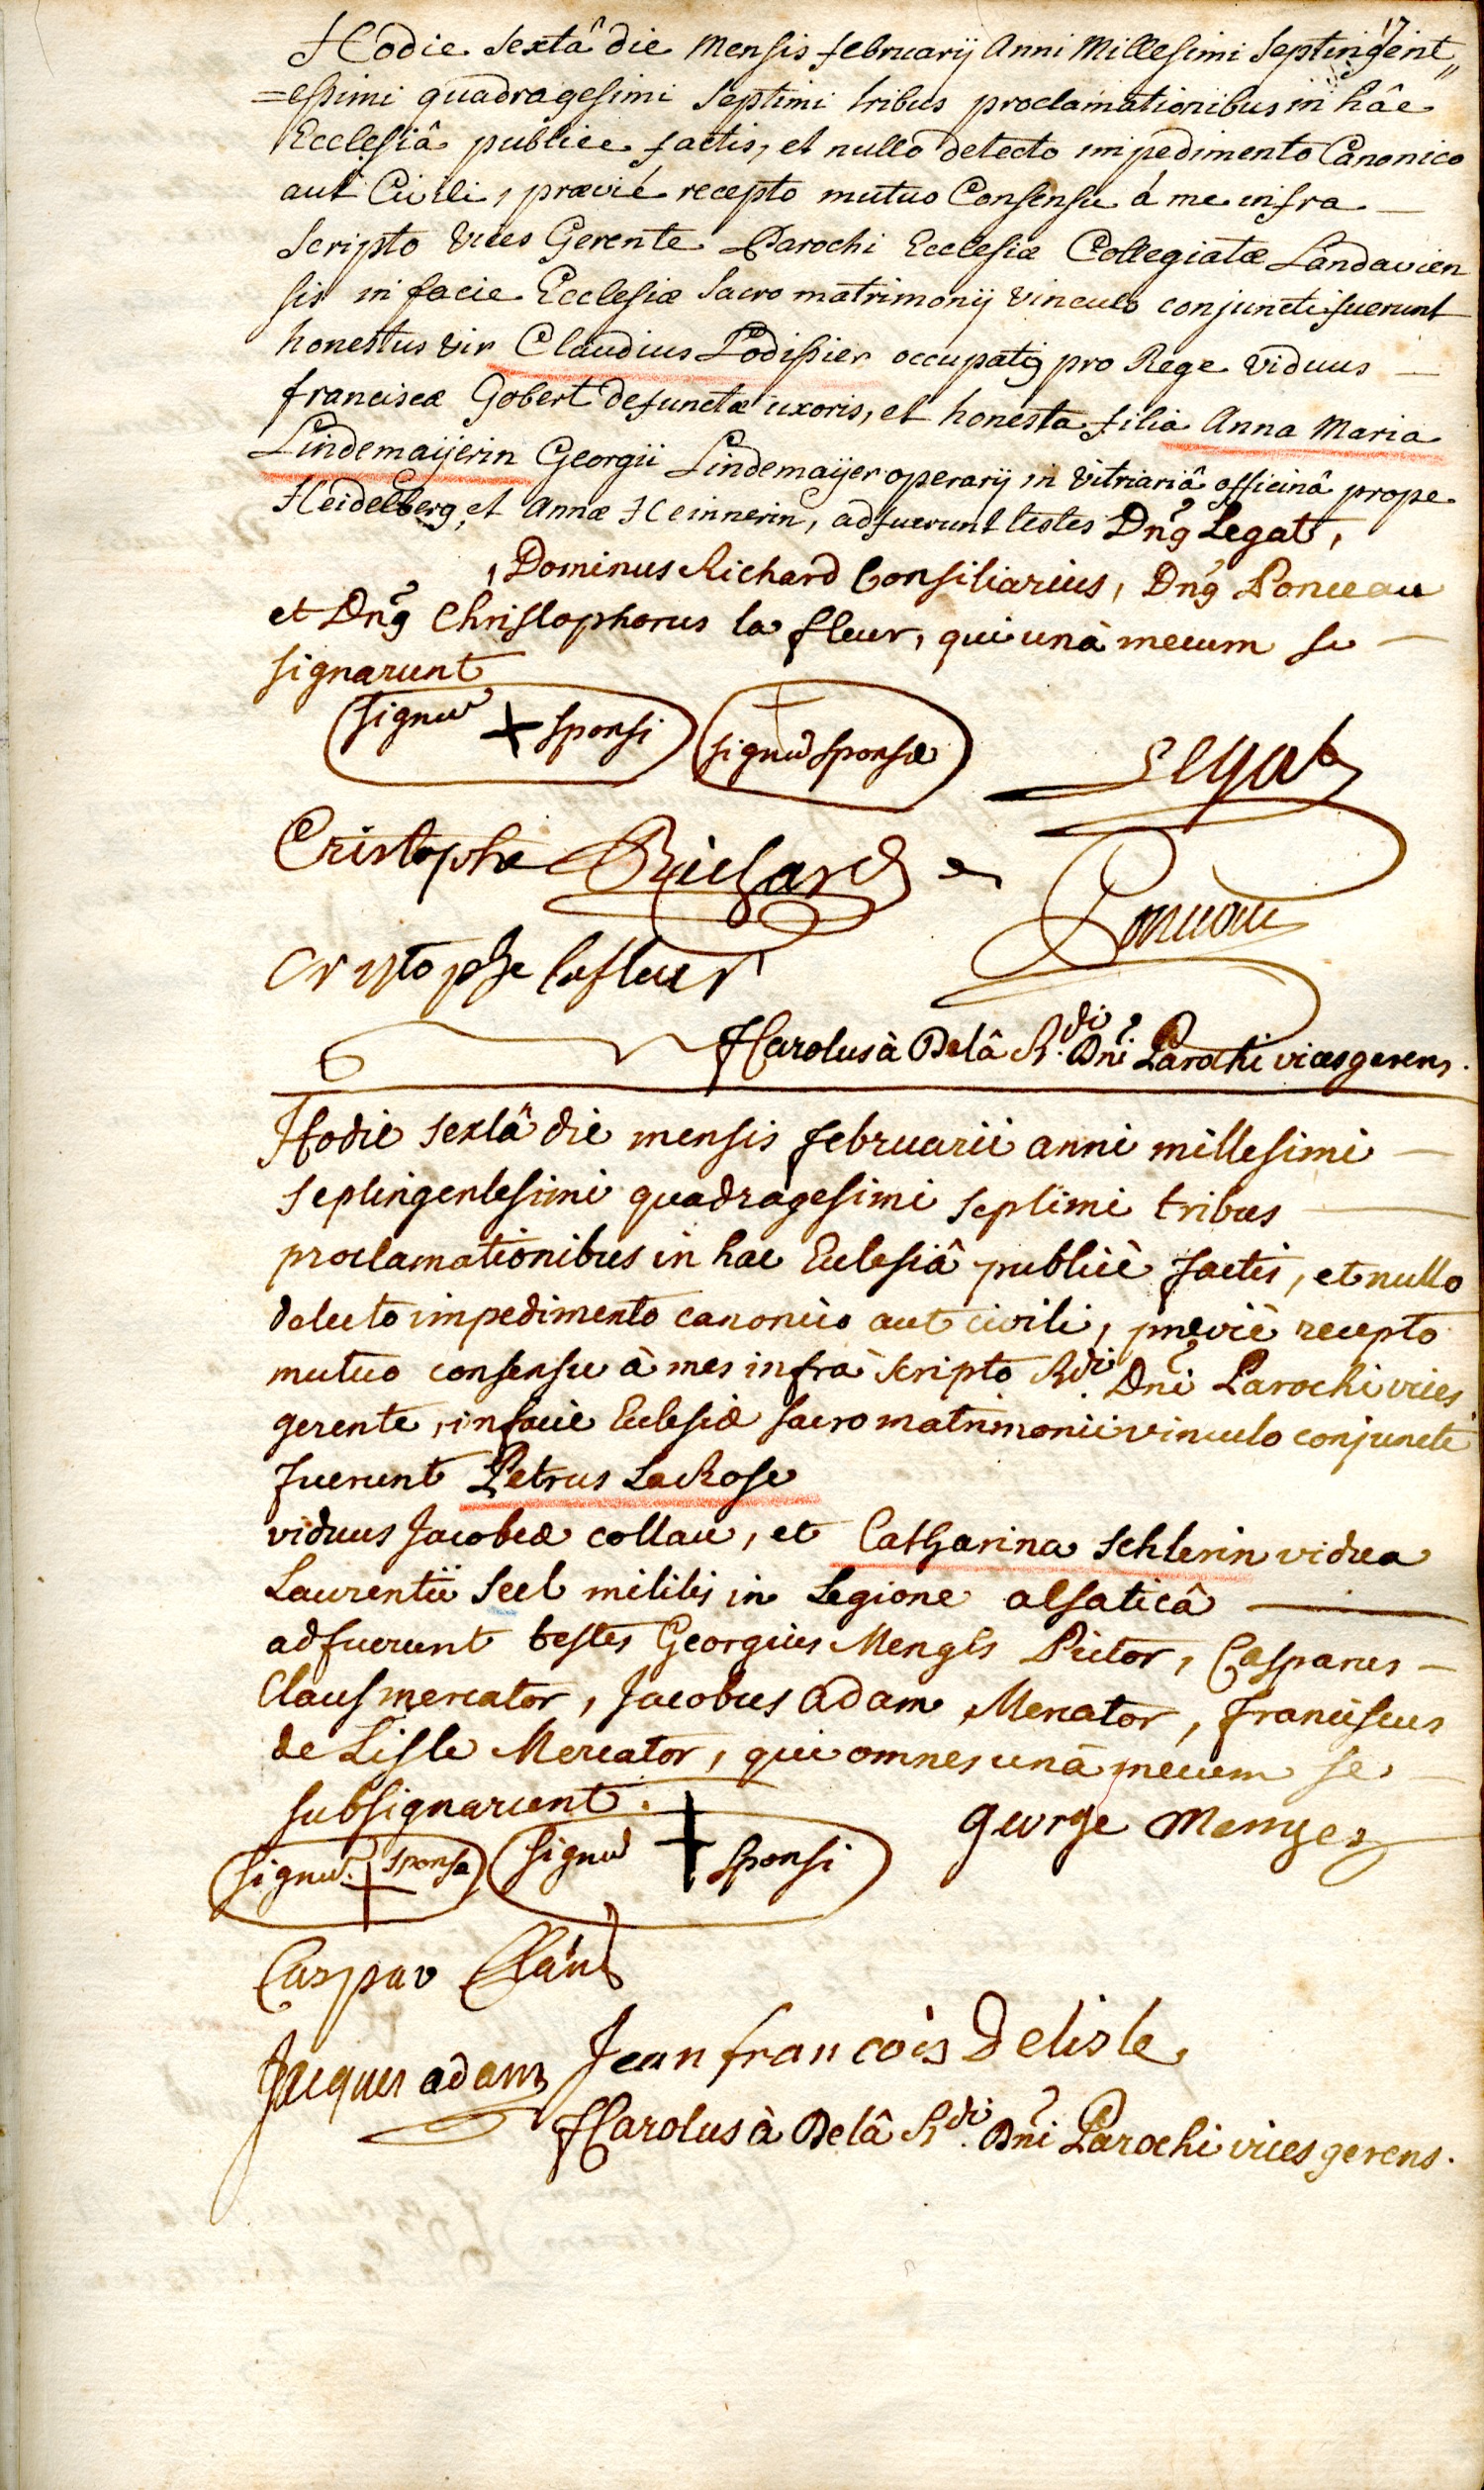 17
Hodie sextâ die mensis februarij Anni Millesimi Septingent„
=essimi quadragesimi septimi tribus proclamationibus in hâc
Ecclesiâ publice factis, et nullo detecto impedimento Canonico
aut Civili, prævie recepto mutuo Consensu á me infra —
scripto vices Gerente Parochi Ecclesiæ Collegiatæ Landavien
sis in facie Ecclesiæ sacro matrimonij vinculo conjuncti fuerunt
honestus vir Claudius Lodissier pro Rege viduus —
franciscæ Gobert defunctæ uxoris, et honesta filia Anna Maria
Lindemaijerin Georgii Lindemaijer operarij in vitriariâ officinâ prope
Heidelberg, et Annæ Heinnerin, adfuerunt testes Dng Legat,
, Dominus Richard Consiliarius, Dng Ponceau
et Dng Christophorus la fleur, qui unà mecum se —
signarunt
signu + sponsi signu sponsæ
Legat
Cristophe Richard
Ponceau
Cristophe lafleur
Carolus à Delâ R.di Dni Parochi vices gerens.
Hodie sextâ die mensis februarii anni millesimi —
septingentesimi quadragesimi septimi tribus —
proclamationibus in hac Ecclesiâ publicè factis, et nullo
detecto impedimento canonico aut civili, prævie recepto
mutuo consensu à me infrà scripto R.di Dni Parochi vices
gerente, in facie Ecclesiæ sacro matrimonii vinculo conjuncti
fuerunt Petrus LaRose
viduus Jacobeæ collau, et Catharina Schlerin vidua
Laurentii Seel militis in Legione alsaticâ —
adfuerunt testes Georgius Menges Pictor, Casparus —
Claus mercator, Jacobus adam Mercator, franciscus
de Lisle Mercator, qui omnes unà mecum se —
subsignarunt.
george Menges
signu. + sponsæ signu + sponsi
Caspar Claus
Jacques adam Jean francois Delisle
Carolus à Delâ R.di Dni Parochi vices gerens.